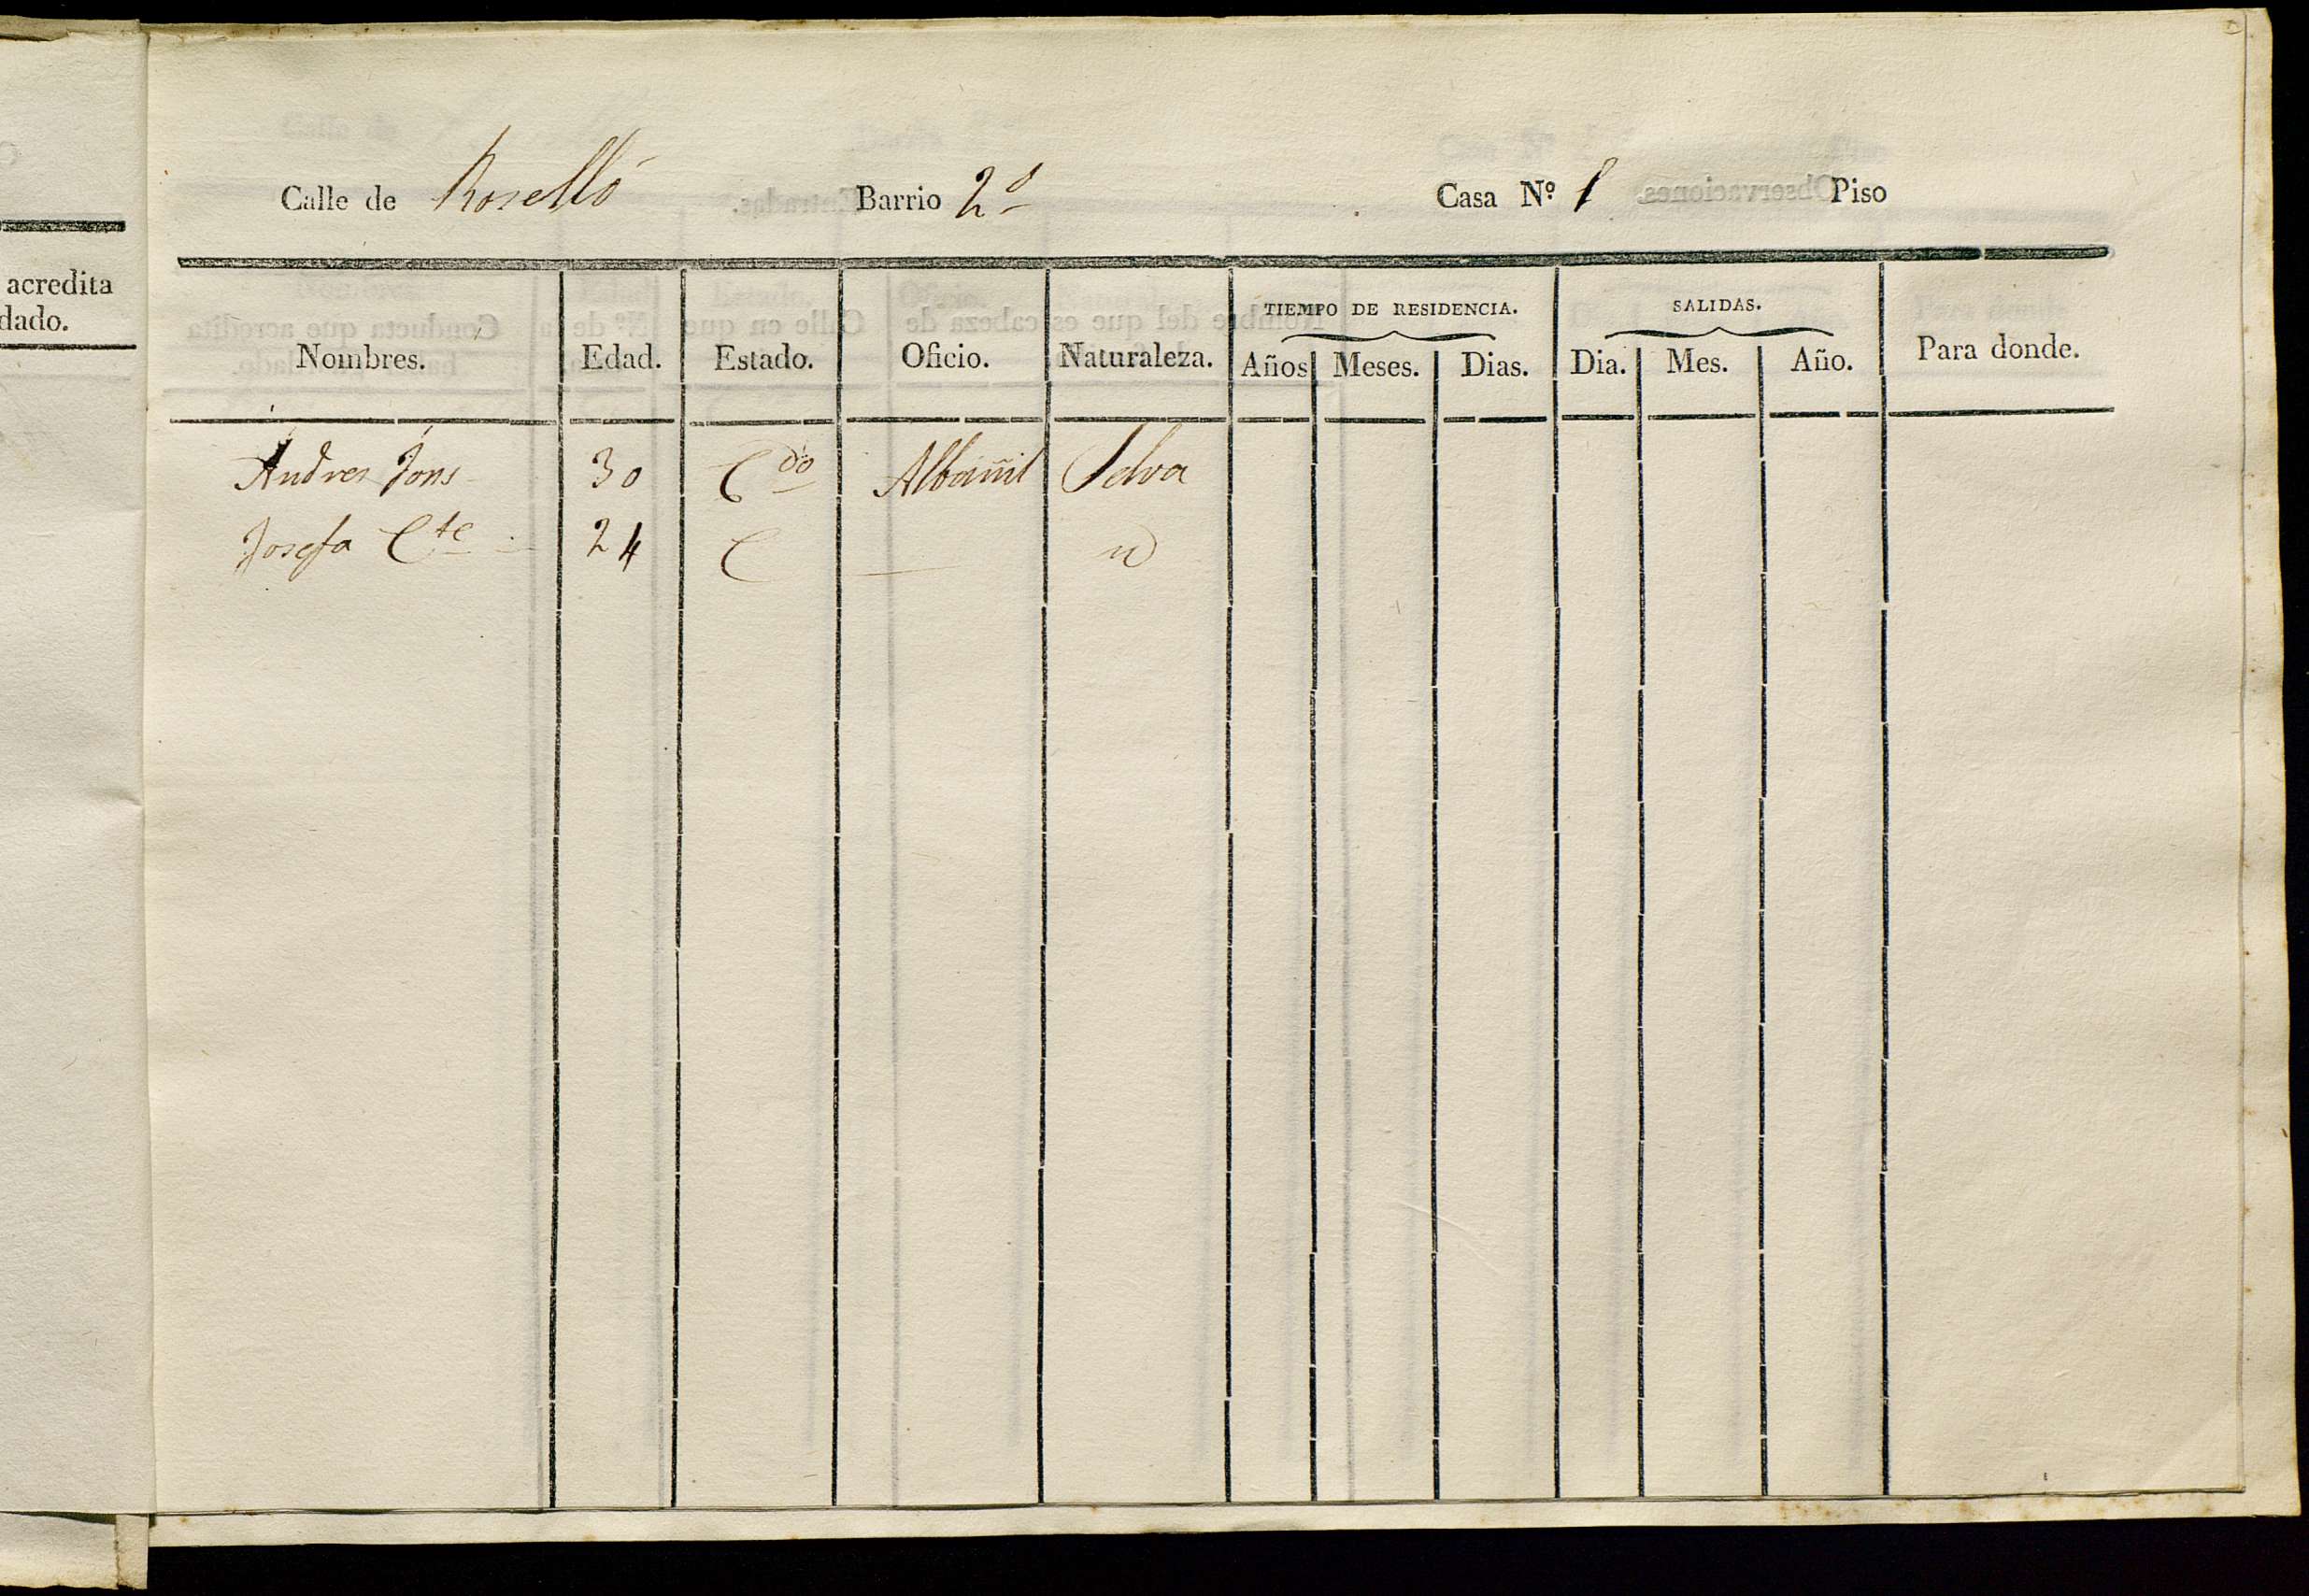 acredita
dado.
Calle de Roselló Barrio 2º Casa Nº 1 Piso
Nombres. Edad. Estado. Oficio. Naturaleza. TIEMPO DE RESIDENCIA. Años Meses. Dias. SALIDAS. Dia. Mes. Año. Para donde.
Andres Jons 30 Cdo Albañil Selva
Josefa Cte 24 C — id